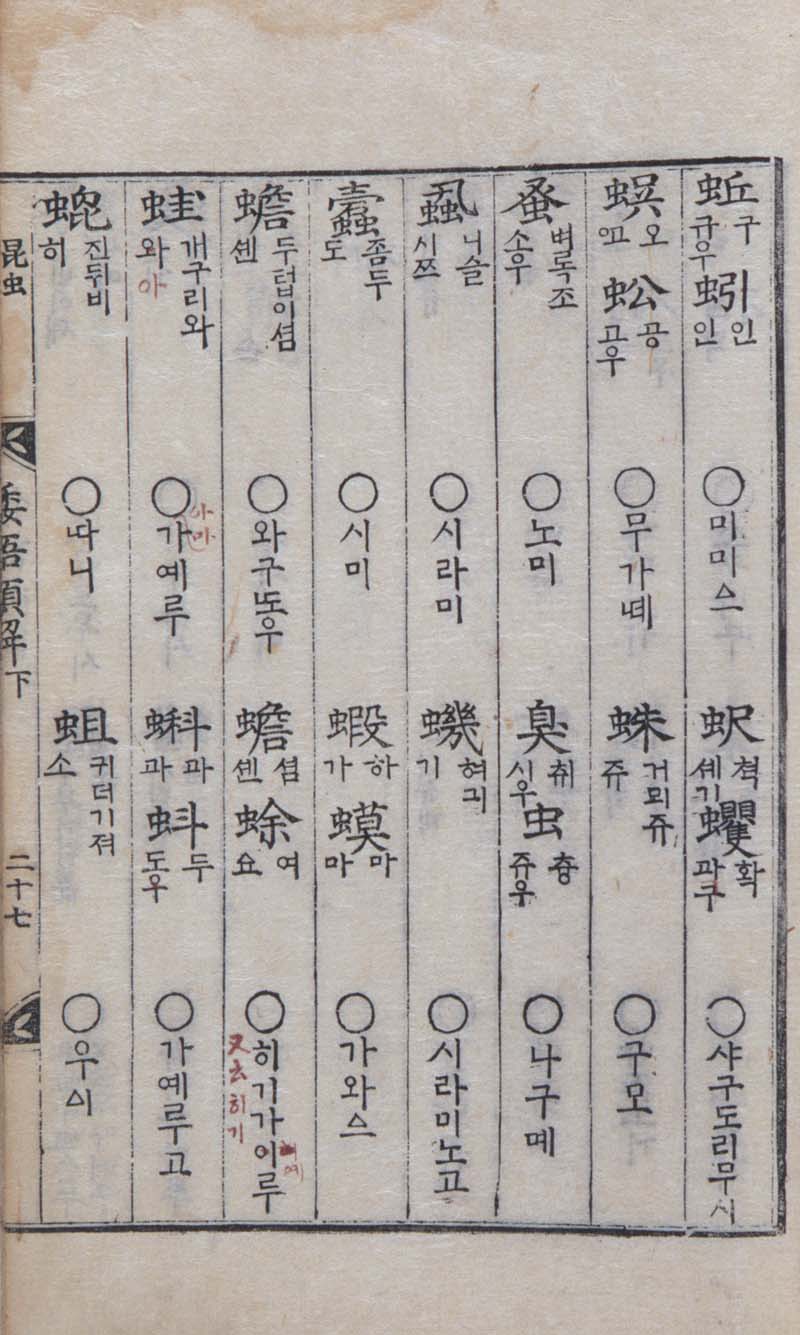 蚯 구 규우 蚓 인 인 ○미미스
蚇 쳑 셰기 蠼 확 파구 ○샤구도리무시
蜈 오 蚣 공 고우 ○무가뎨
蛛 거믜쥬 쥬 ○구모
蚤 벼록조 소우 ○노미
臭 취 시우 虫 츙 쥬우 ○나구몌
蝨 니슬 시쯔 ○시라미
蟣 혀긔 기 ○시라미노고
蠹 좀두 도 ○시미
蝦 하 가 蟆 마 마 ○가와스
蟾 두텁이셤 셴 ○와구ᄯᅩ우
蟾 셤 셴 蜍 여 요 ○히기가이루
又云히기
蛙 개구리와 와 아 ○가예루
아마
蝌 과 과 蚪 두 도우 ○가예루고
螕 진뒤비 히 ○따니
蛆 귀더기져 소 ○우싀
昆虫
倭語類解下
二十七